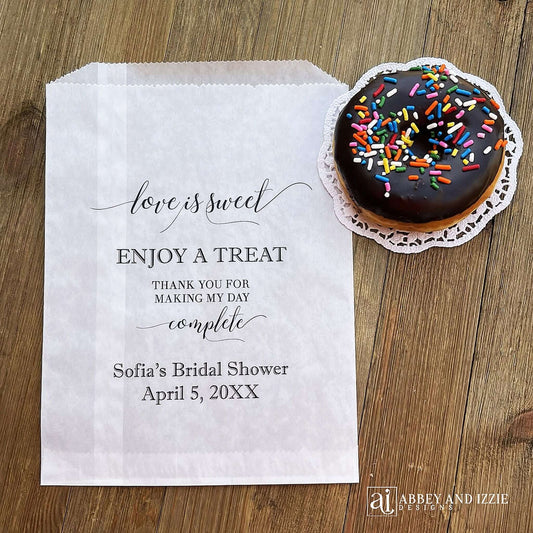 love is sweet
ENJOY A TREAT
THANK YOU FOR
MAKING MY DAY
complete
Sofia's Bridal Shower
April 5, 20XX
ai ABBEY AND IZZIE
DESIGNS